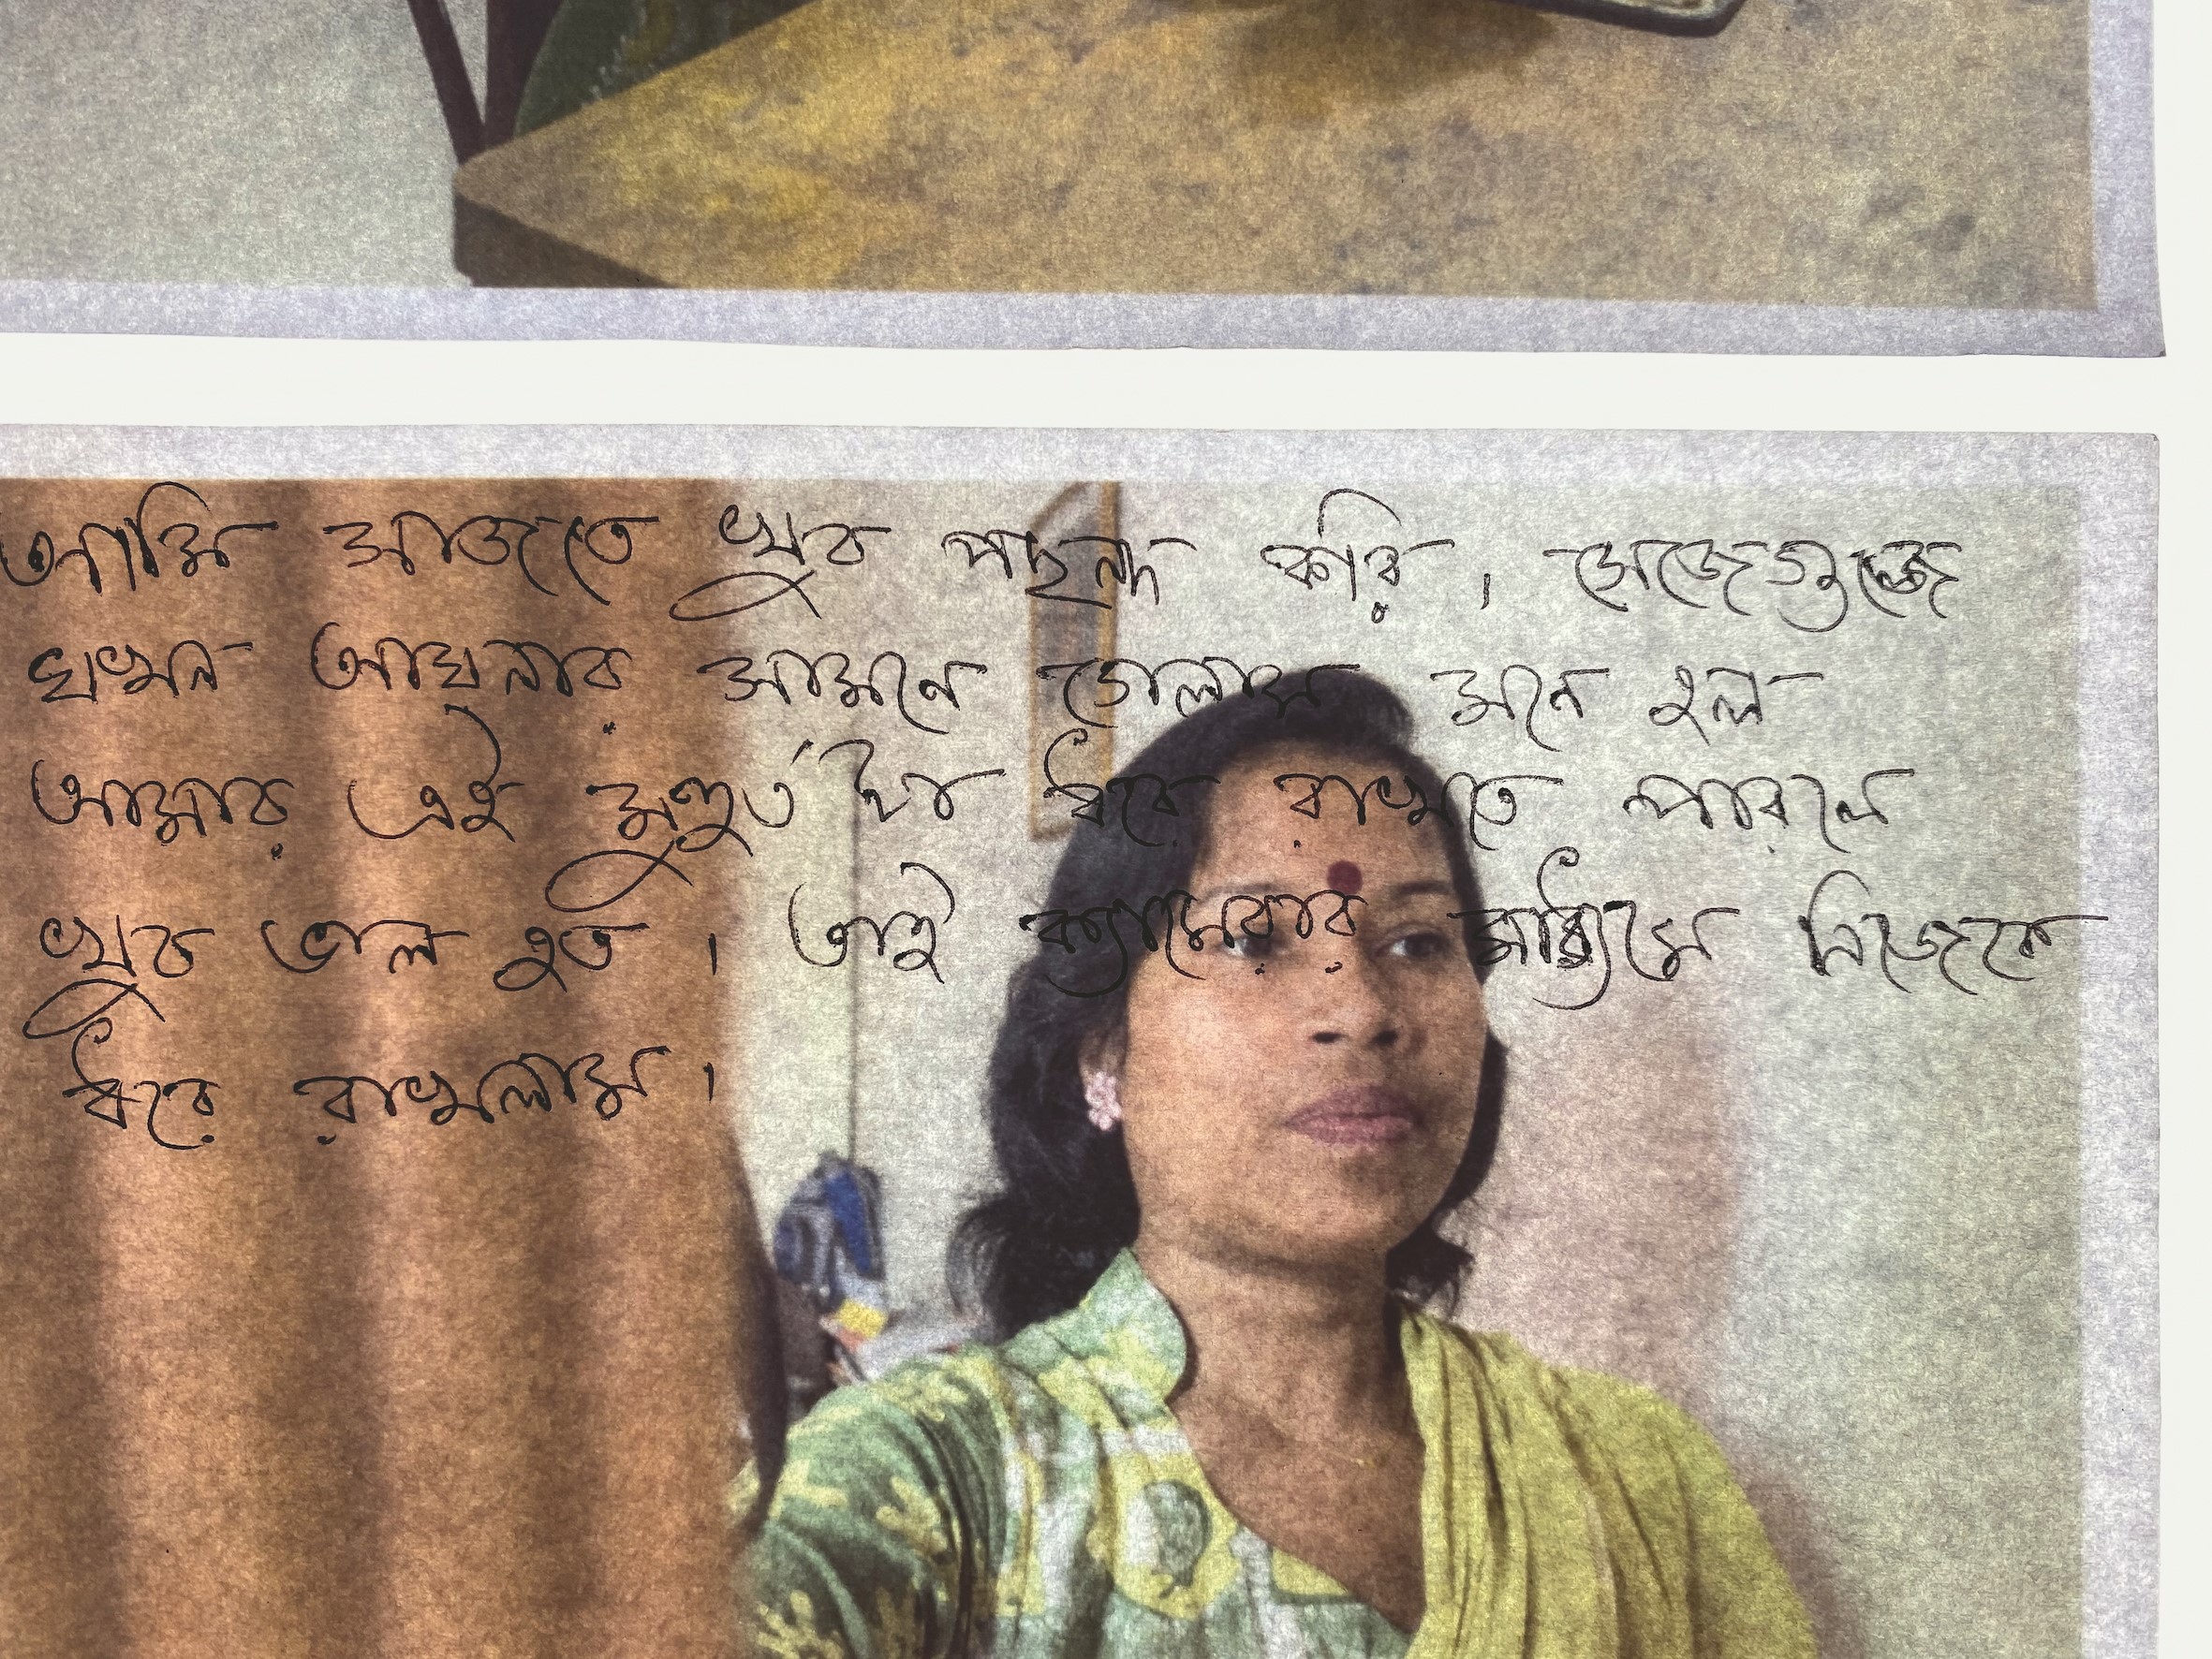 আমি সাজতে খুব পছন্দ করি। সেজেগুজে
যখন আয়নার সামনে গেলাম মনে হল
আমার এই মুহুর্ত টা ধরে রাখতে পারলে
খুব ভাল হত। তাই ক্যামেরার মাধ্যমে নিজেকে
ধরে রাখলাম।